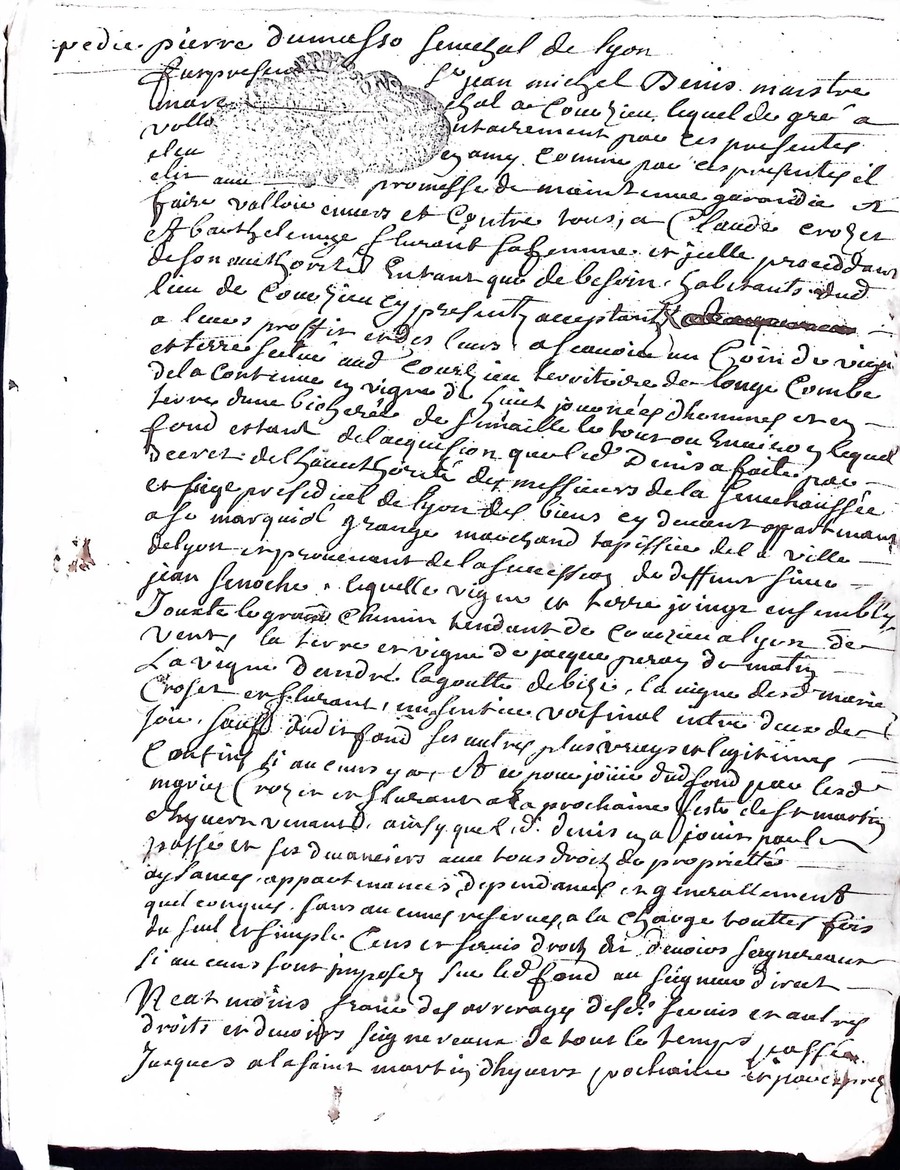 pierre dumasso senechal de lyon
fut present Sr jean michel Denis maistre
mare chal a Courzieu lequel de gré a
vollo ntairement par ces presentes
comme par ces presentes il
promesse de maintenue garandie et
faire valloir envers et Contre tous, a Claude crozet
et barthelemye flurant sa femme et jcelle proceddant
de son authorité Entant que de besoin, habitants dud
lieu de Courzieu cy presents acceptants
a leurs proffit et des leurs a scauoir un Coin de vigne
et terre scitué aud Courzieu territoire de longe Combe
de la Contenue en vigne de huit journées d'hommes et en
terre d'une bicherée de semaille le tout ou Enuiron lequel
fond estant de lacquision que led Denis a faite par
decret de l'hauthorité des messieurs de la senechaussée
et siege presidial de lyon des biens cy deuant appartenant
a sr marquiol grange marchand tapissier de la ville
de lyon et prouenant de la succession de deffunt sieur
jean senoche, lequelle vigne et terre joingt ensembles
Jouxte le grand Chemin tendant de Courzieu a lyon de
vent, la terre et vigne de jacque de matin
La vigne d'andré lagoutte de bize, la vigne desd mariés
Croset et flurant, un sentier voisinal entre deux de
soir, sauf dudit fond ses autres plus vrays et legitimes
Confins si aucuns y a, Et pour joüir dud fond par lesd
mariez Crozet et flurant a la prochaine feste de st martin
d'hyuert venant, ainsy que led. denis en a jouit par le
passé et ses deuanciers aux tous droits de proprietté
aysances, appartenances dependances et generallement
quelconques, sans aucunes reserues, a la charge touttes fois
du seul et simple Cens et seruis droits et deuoirs seigneuriaux
si aucuns sont jmposez sur led fond au seigneur direct
Neatmoins franc des arrerages desd. seruis et autres
droits et deuoirs seigneuriaux de tout le temps passé
Jusques a la saint martin d'hyuers prochaine et par exprez